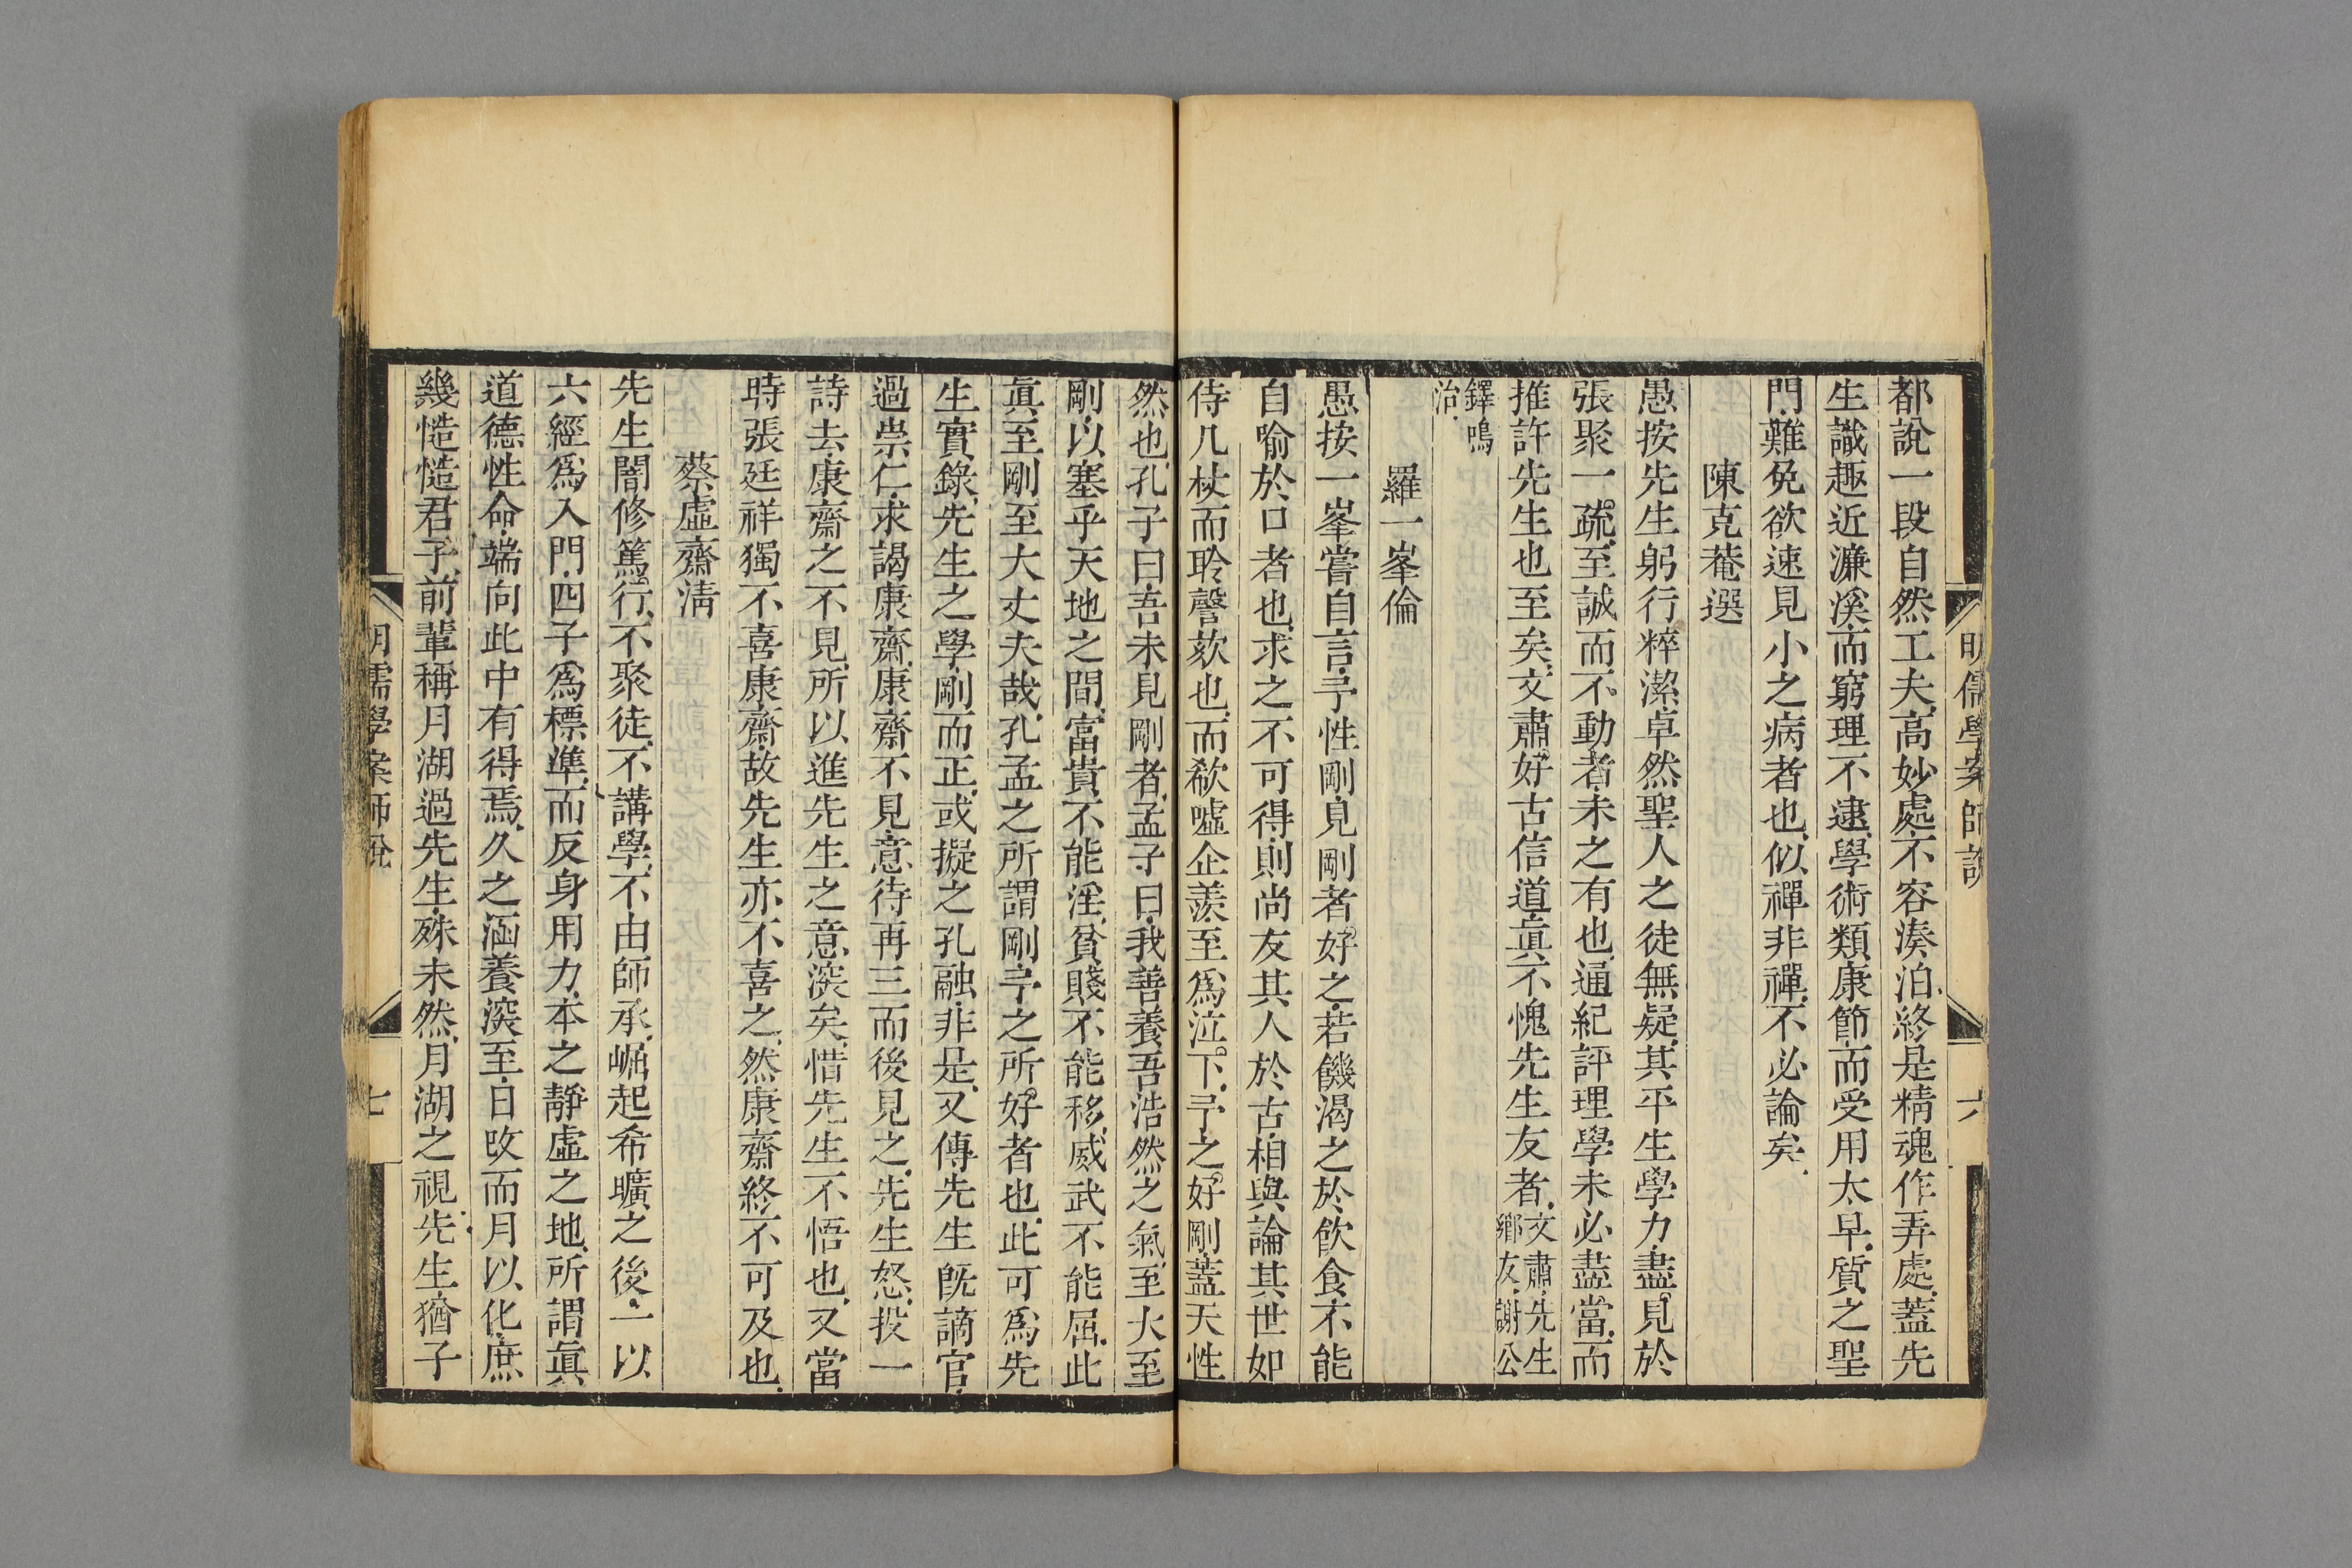 明儒學案 師說 六
都說一段自然工夫高妙處不容湊泊終是精魂作弄處蓋先
生識趣近濂溪而窮理不逮學術類康節而受用太早質之聖
門難免欲速見小之病者也似禪非禪不必論矣
陳克菴選
愚按先生躬行粹潔卓然聖人之徒無疑其平生學力盡見於
張聚一疏至誠而不動者未之有也通紀評理學未必盡當而
推許先生也至矣文肅好古信道眞不愧先生友者文肅先生鄉友謝公
鐸鳴治
羅一峯倫
愚按一峯嘗自言予性剛見剛者好之若饑渴之於飲食不能
自喻於口者也求之不可得則尚友其人於古相與論其世如
侍几杖而聆謦欬也而欷噓企羨至爲泣下予之好剛蓋天性
然也孔子曰吾未見剛者孟子曰我善養吾浩然之氣至大至
剛以塞乎天地之間富貴不能淫貧賤不能移威武不能屈此
眞至剛至大丈夫哉孔孟之所謂剛予之所好者也此可爲先
生實錄先生之學剛而正或擬之孔融非是又傳先生旣謫官
過崇仁求謁康齋康齋不見意待再三而後見之先生怒投一
詩去康齋之不見所以進先生之意深矣惜先生不悟也又當
時張廷祥獨不喜康齋故先生亦不喜之然康齋終不可及也
蔡虛齋淸
先生闇修篤行不聚徒不講學不由師承崛起希曠之後一以
六經爲入門四子爲標準而反身用力本之靜虛之地所謂眞
道德性命端向此中有得焉久之涵養深至日改而月以化庶
幾慥慥君子前輩稱月湖過先生殊未然月湖之視先生猶子
明儒學案 師說 七